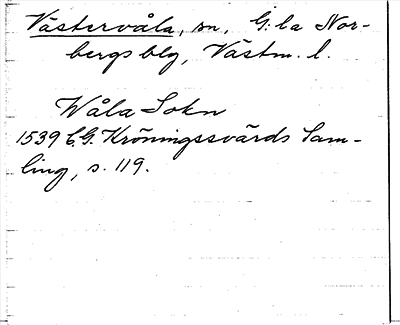 Västervåla, sn, G:la Nor-
bergs blg, Västm. l.
Wåla Sokn
1539 C.G. Kröningssvärds Sam-
ling, s. 119.